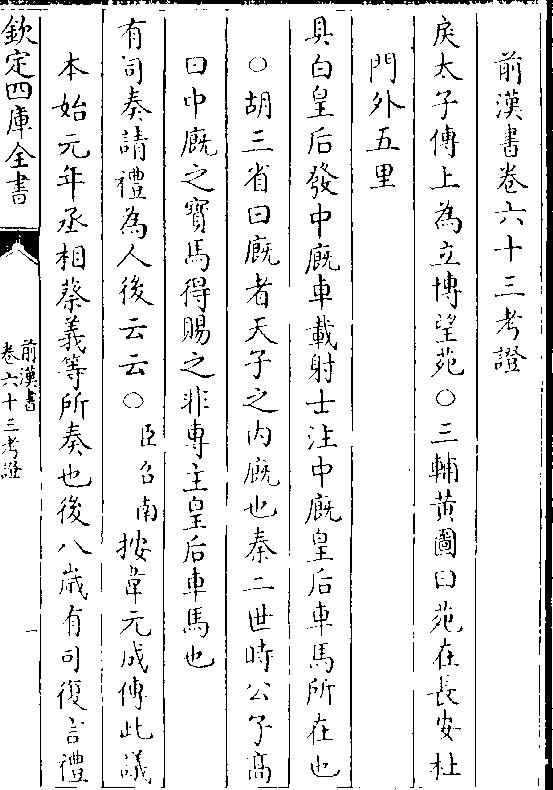 前漢書卷六十三考證
戾太子傳上為立博望苑○三輔黃圖曰苑在長安杜
門外五里
具白皇后發中廐車載射士注中廐皇后車馬所在也
○胡三省曰廐者天子之内廐也秦二世時公子高
曰中廐之寶馬得賜之非專主皇后車馬也
有司奏請禮為人後云云○臣召南按韋元成傳此議
本始元年丞相蔡義等所奏也後八歲有司復言禮
欽定四庫全書
前漢書
卷六十三考證
一